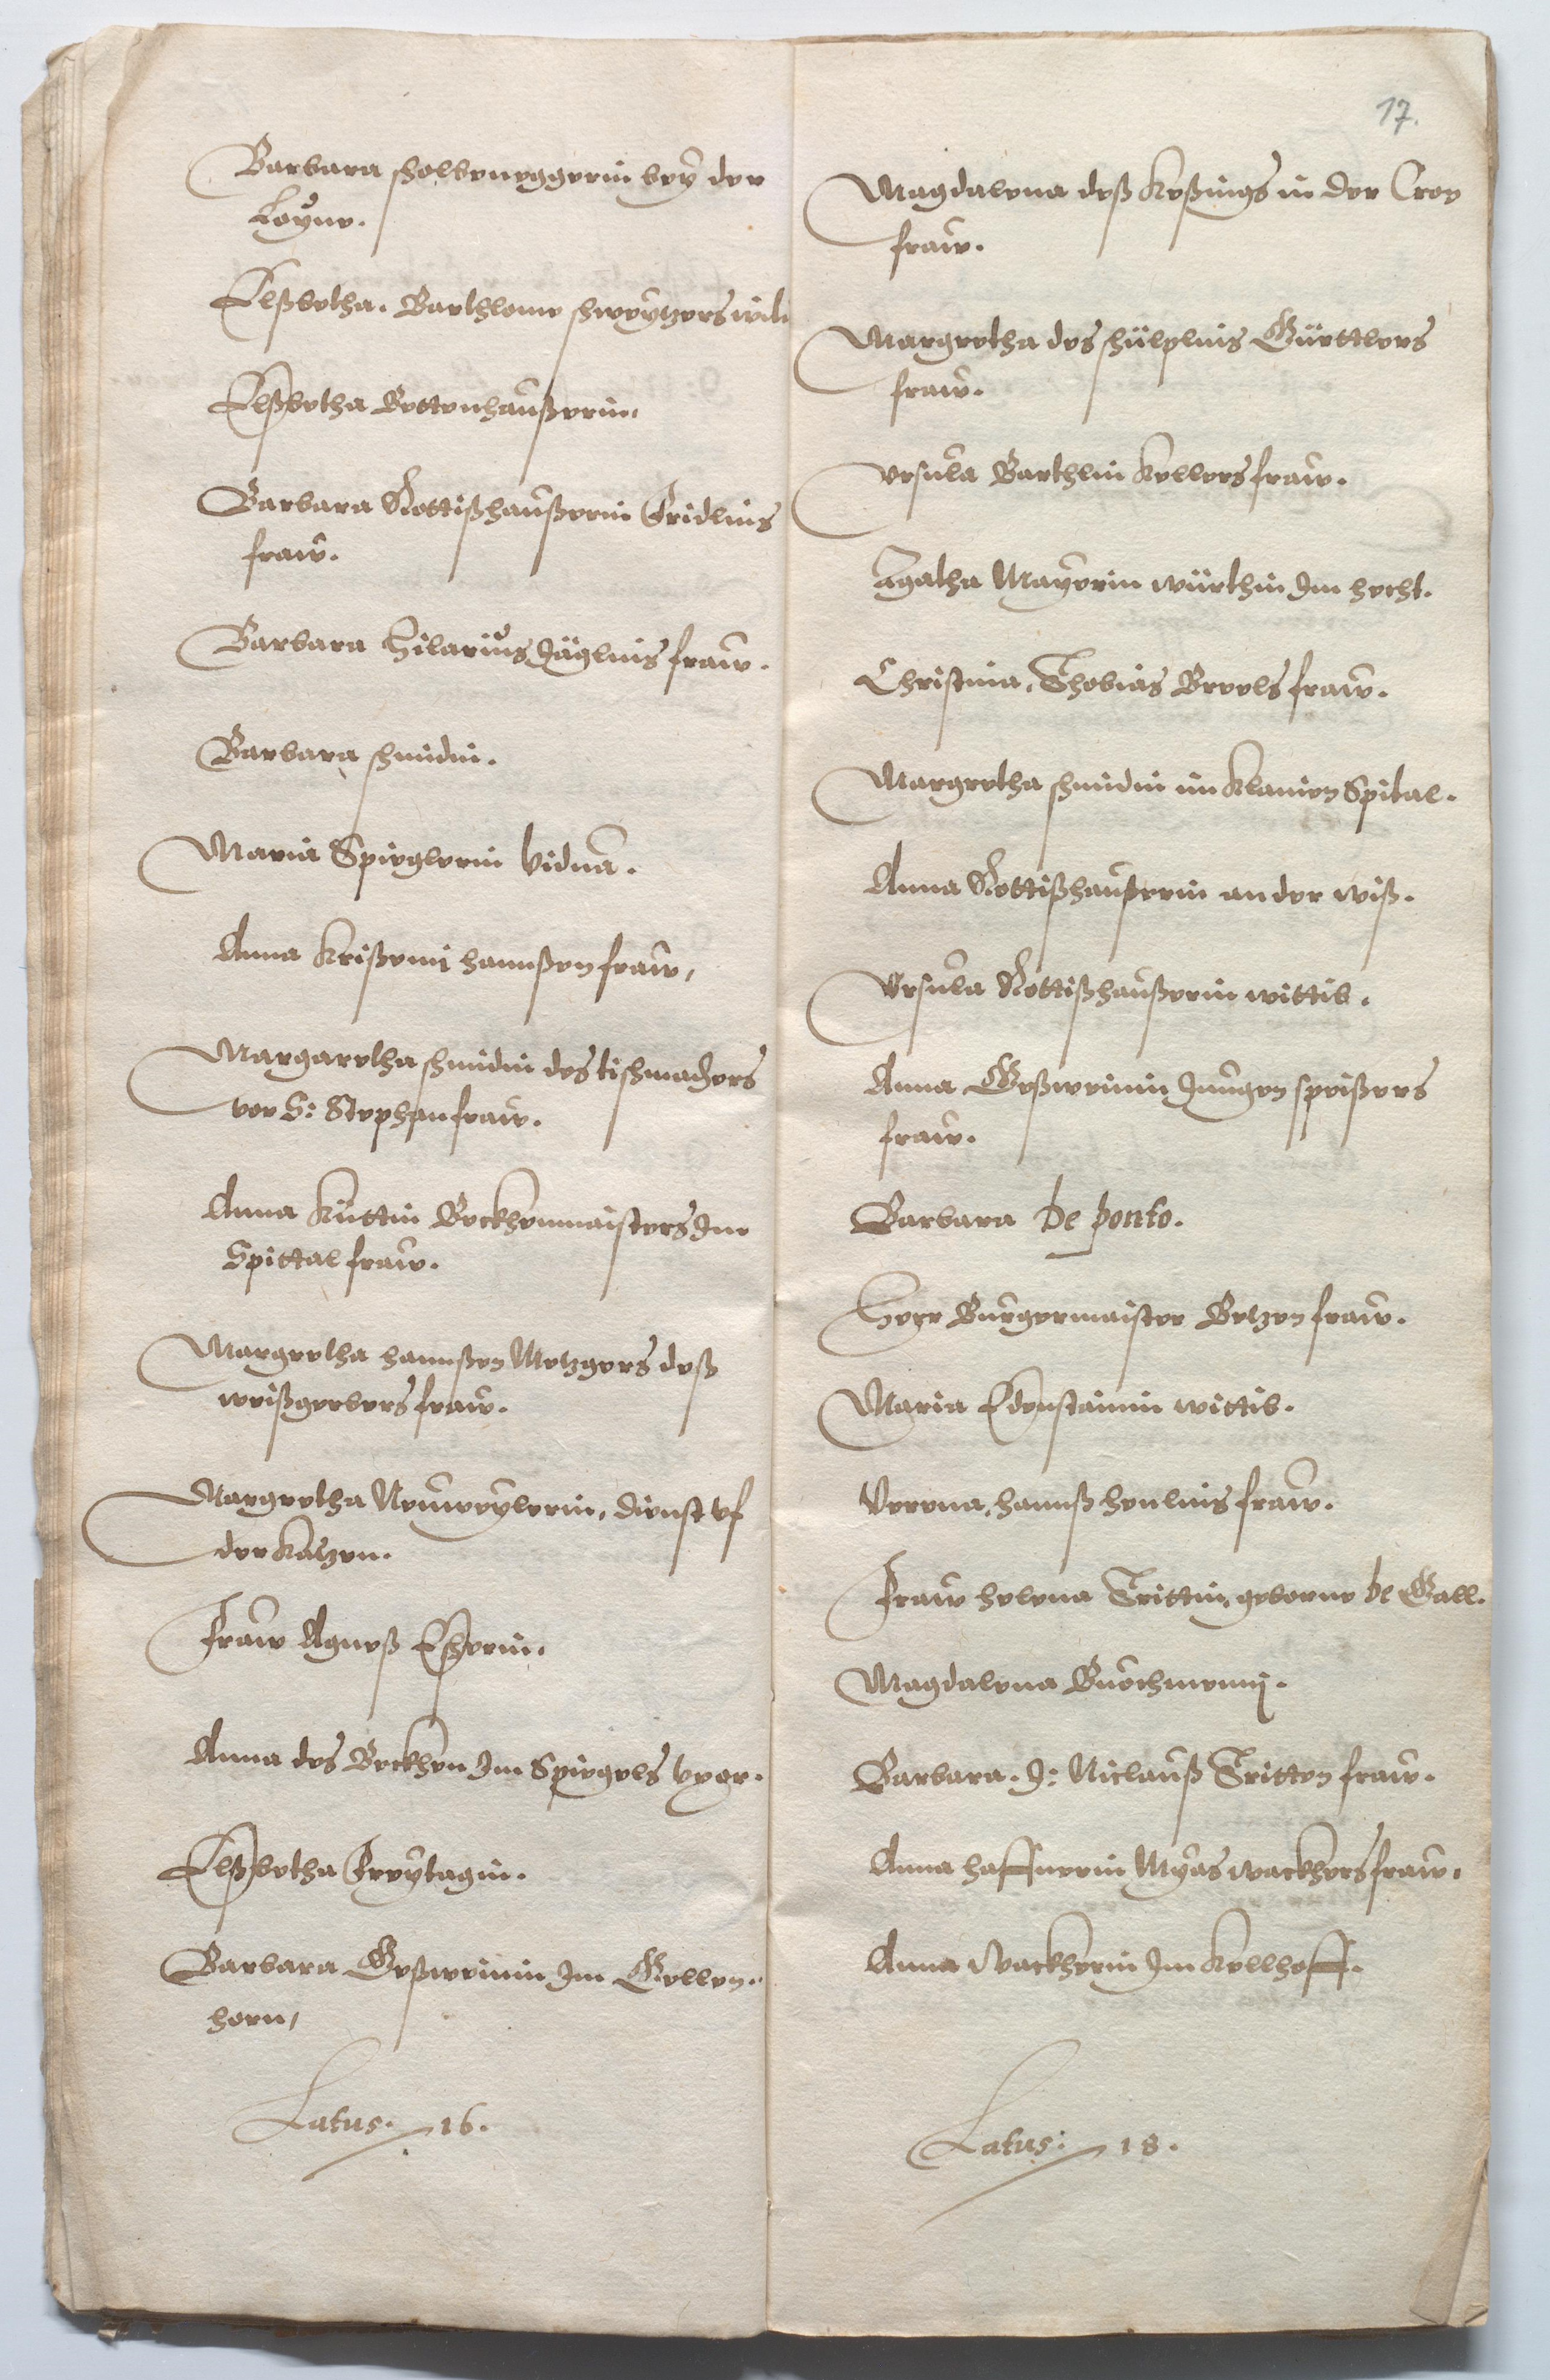 Barbara Scholbeneggerin bey der
Leyne.
Elßbetha. Barthlome schweytzers wib
Elßbetha Bettenhaußerin.
Barbara Rottißhaußerin Fridlins
fraw.
Barbara Hilarius Jäglins fraw.
Barbara schmidin.
Maria Spieglerin vidua.
Anna Krißemi hannßen fraw,
Margaretha schmidin des tischmachers
vor S: Stephan fraw.
Anna Kuttin Beckhenmaisters Im
Spittal fraw.
Margretha hannßen Metzgers deß
weißgerbers fraw.
Margretha Neuweylerin, dienst vf
der Katzen.
Fraw Agneß Escherin.
Anna des Beckhen Im Spiegels
Elßbetha Freytagin.
Barbara Geßweinin Im Gellen-
horn,
Latus. 16.
17.
Magdalena deß Keßings in der Croy
fraw.
Margretha des schülplins Gürttlers
fraw.
Vrsula Barthlin Kellers fraw.
Agatha Mayerin würthin Im hecht.
Christina, Thobias Breels fraw.
Margretha schmidin im Klainen Spital.
Anna Rottißhaußerin an der wiß.
Vrsula Rottißhaußerin wittib.
Anna Geßweinin Jungen speißers
fraw.
Barbara de ponto.
Herr Burgermaister Betzen fraw.
Maria Edenstainin wittib.
Verena, hannß henlins fraw.
Fraw helena Trittin, geborne de Gall.
Magdalena Buochmemij.
Barbara. J: Niclauß Tritten fraw.
Anna haffnerin Myas wackhers fraw.
Anna Wackherin Im Kellhoff.
Latus: 18.